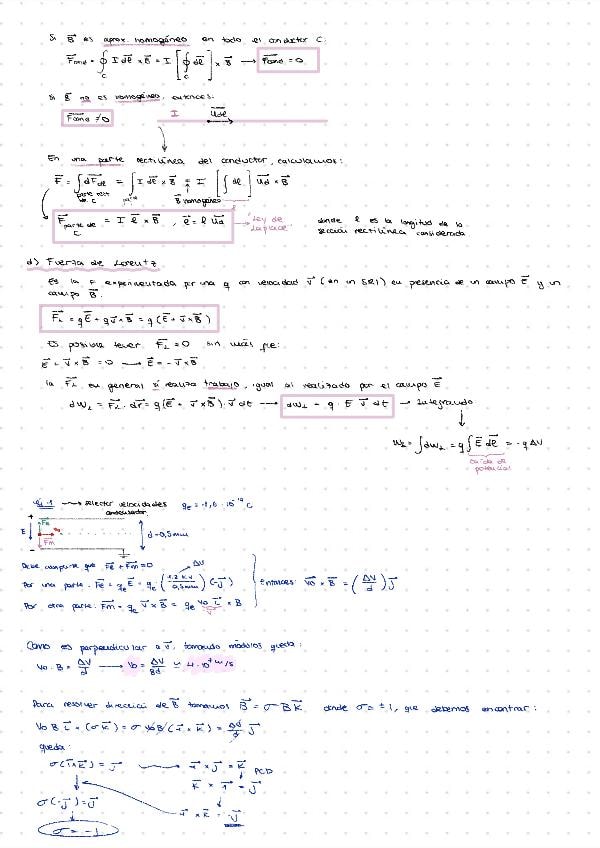 Si B⃗ es aprox. homogéneo en todo el conductor C:
F⃗cond = ∮_C I dl⃗ × B⃗ = I [∮_C dl⃗] × B⃗ → F⃗cond = 0
Si B⃗ no es homogéneo, entonces:
F⃗cond ≠ 0
I
En una parte rectilínea del conductor, calculamos:
F⃗ = ∫ dF⃗dl = ∫ I dl⃗ × B⃗ = I [∫ dl] × B⃗
B⃗ homogéneo
F⃗ parte de C = I l⃗ × B⃗ , l⃗ = l
"Ley de Laplace"
donde l es la longitud de la
sección rectilínea considerada
d) Fuerza de Lorentz
Es la F experimentada por una q con velocidad v⃗ (en un SRI) en presencia de un campo E⃗ y un
campo B⃗.
F⃗L = qE⃗ + qv⃗×B⃗ = q(E⃗ + v⃗×B⃗)
Es posible tener F⃗L = 0 sin más que:
E⃗ + v⃗ × B⃗ = 0 → E⃗ = - v⃗×B⃗
la F⃗L en general sí realiza trabajo, igual al realizado por el campo E⃗
dWL = F⃗L · dr⃗ = q(E⃗ + v⃗×B⃗)·v⃗ dt → dWL = q · E⃗ v⃗ dt → Integrando
WL = ∫dWL = q∫E⃗ dl⃗ = -qΔV
caída de
potencial
Ej. 1 → selector velocidades qe = -1,6 · 10⁻¹⁹ C
condensador
E
Fe
Fm
d = 0,5mm
Debe cumplirse que F⃗e + F⃗m = 0
ΔV
Por una parte: F⃗e = qe E⃗ = qe (1,2 kV / 0,5mm) (-j⃗)
Entonces: v⃗0 × B⃗ = (ΔV/d) j⃗
Por otra parte: F⃗m = qe v⃗ × B⃗ = qe v0 i⃗ × B⃗
Como es perpendicular a v⃗, tomando módulos queda:
v0 · B = ΔV/d → v0 = ΔV/Bd ≃ 4 · 10⁷ m/s
Para resolver dirección de B⃗ tomamos B⃗ = σ B k⃗ donde σ = ±1, que debemos encontrar:
v0 B i⃗ × (σ k⃗) = σ v0 B (i⃗ × k⃗) = ΔV/d j⃗
queda:
σ(i⃗×k⃗) = j⃗ → i⃗ × j⃗ = k⃗
k⃗ × i⃗ = j⃗
σ(-j⃗) = j⃗
i⃗ × k⃗ = -j⃗
σ = -1